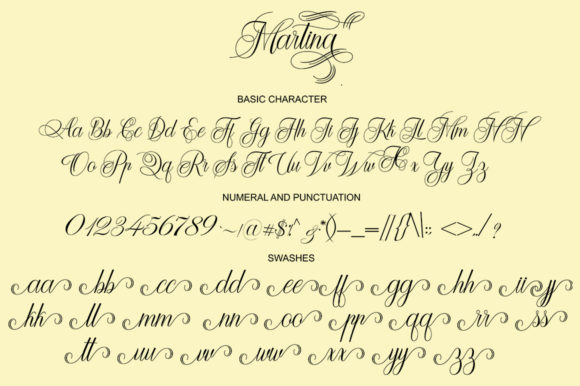 Martina
BASIC CHARACTER
Aa Bb Cc Dd Ee Ff Gg Hh Ii Jj Kk Ll Mm
Oo Pp Qq Rr Ss Tt Uu Vv Ww X x Yy Zz
NUMERAL AND PUNCTUATION
0123456789 ~!@#$%^ &*()—_=//{}\|:; <>,./ ?
SWASHES
aa bb cc dd ee ff gg hh ii jj
kk ll mm nn oo pp qq rr ss
tt uu vv ww xx yy zz